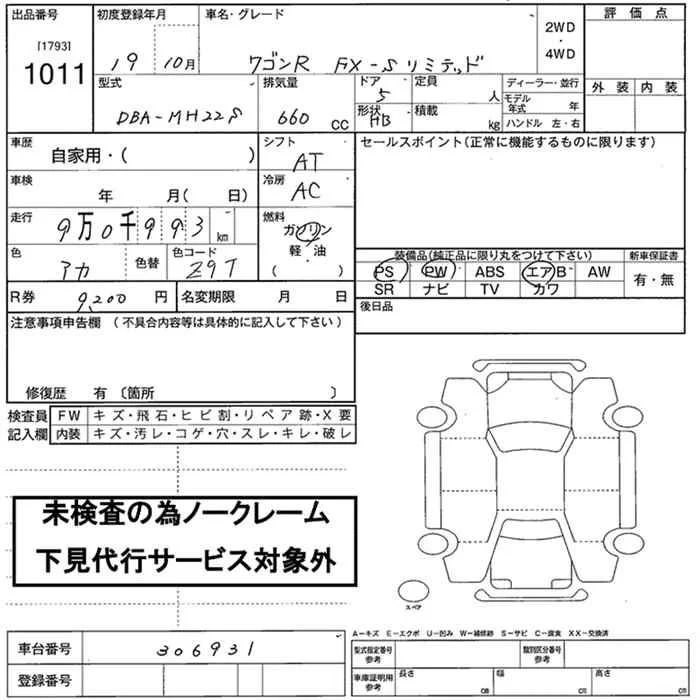 出品番号 初度登録年月 車名・グレード 2WD・4WD 評価点
[1793]
1011 19 10月 ワゴンR FX-Sリミテッド
外装 内装
型式 排気量 ドア 5 定員 人 ディーラー・並行
DBA-MH22S 660 CC 形状 HB 積載 kg モデル年式 年
ハンドル 左・右
車歴 自家用・( ) シフト AT セールスポイント(正常に機能するものに限ります)
車検 年 月( 日) 冷房 AC
走行 9万0千993 km 燃料 ガソリン
軽・油
( )
色 アカ 色替 色コード Z9T
装備品(純正品に限り丸をつけて下さい) 新車保証書
PS PW ABS エアB AW 有・無
SR ナビ TV カワ
R券 9,200 円 名変期限 月 日 後日品
注意事項申告欄(不具合内容等は具体的に記入して下さい)
修復歴 有 〔箇所 〕
検査員 FW キズ・飛石・ヒビ割・リペア跡・X要
記入欄 内装 キズ・汚レ・コゲ・穴・スレ・キレ・破レ
未検査の為ノークレーム
下見代行サービス対象外
スペア
A-キズ E-エクボ U-凹み W-補修跡 S-サビ C-腐食 XX-交換済
車台番号 306931 型式指定番号 参考 類別区分番号 参考
登録番号 車庫証明用 参考 長さ cm 幅 cm 高さ cm